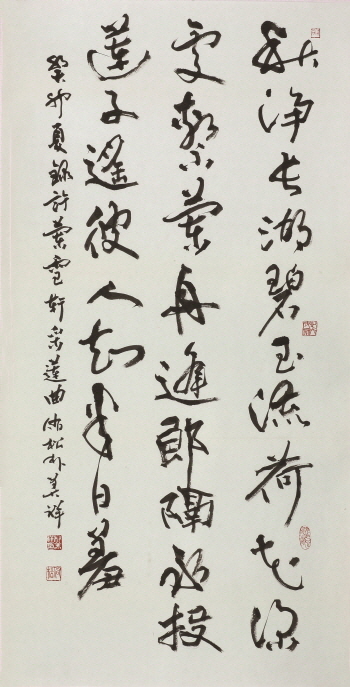 秋浄長湖碧玉流荷花深
處繋蘭舟逢郎隔水投
蓮子遙被人知半日羞
癸卯夏錄許蘭雪軒采蓮曲